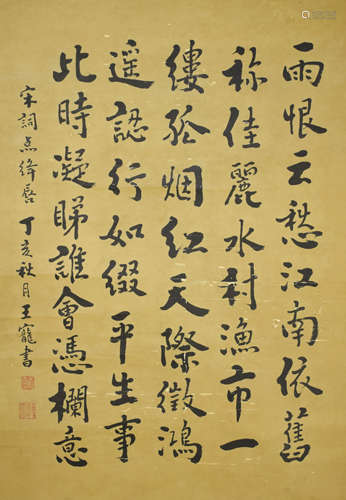 雨恨云愁江南依舊
称佳麗水村漁市一
縷孤烟紅天際徵鴻
遥認行如缀平生事
此時凝睇誰會憑欄意
宋詞点绛唇丁亥秋月王寵書